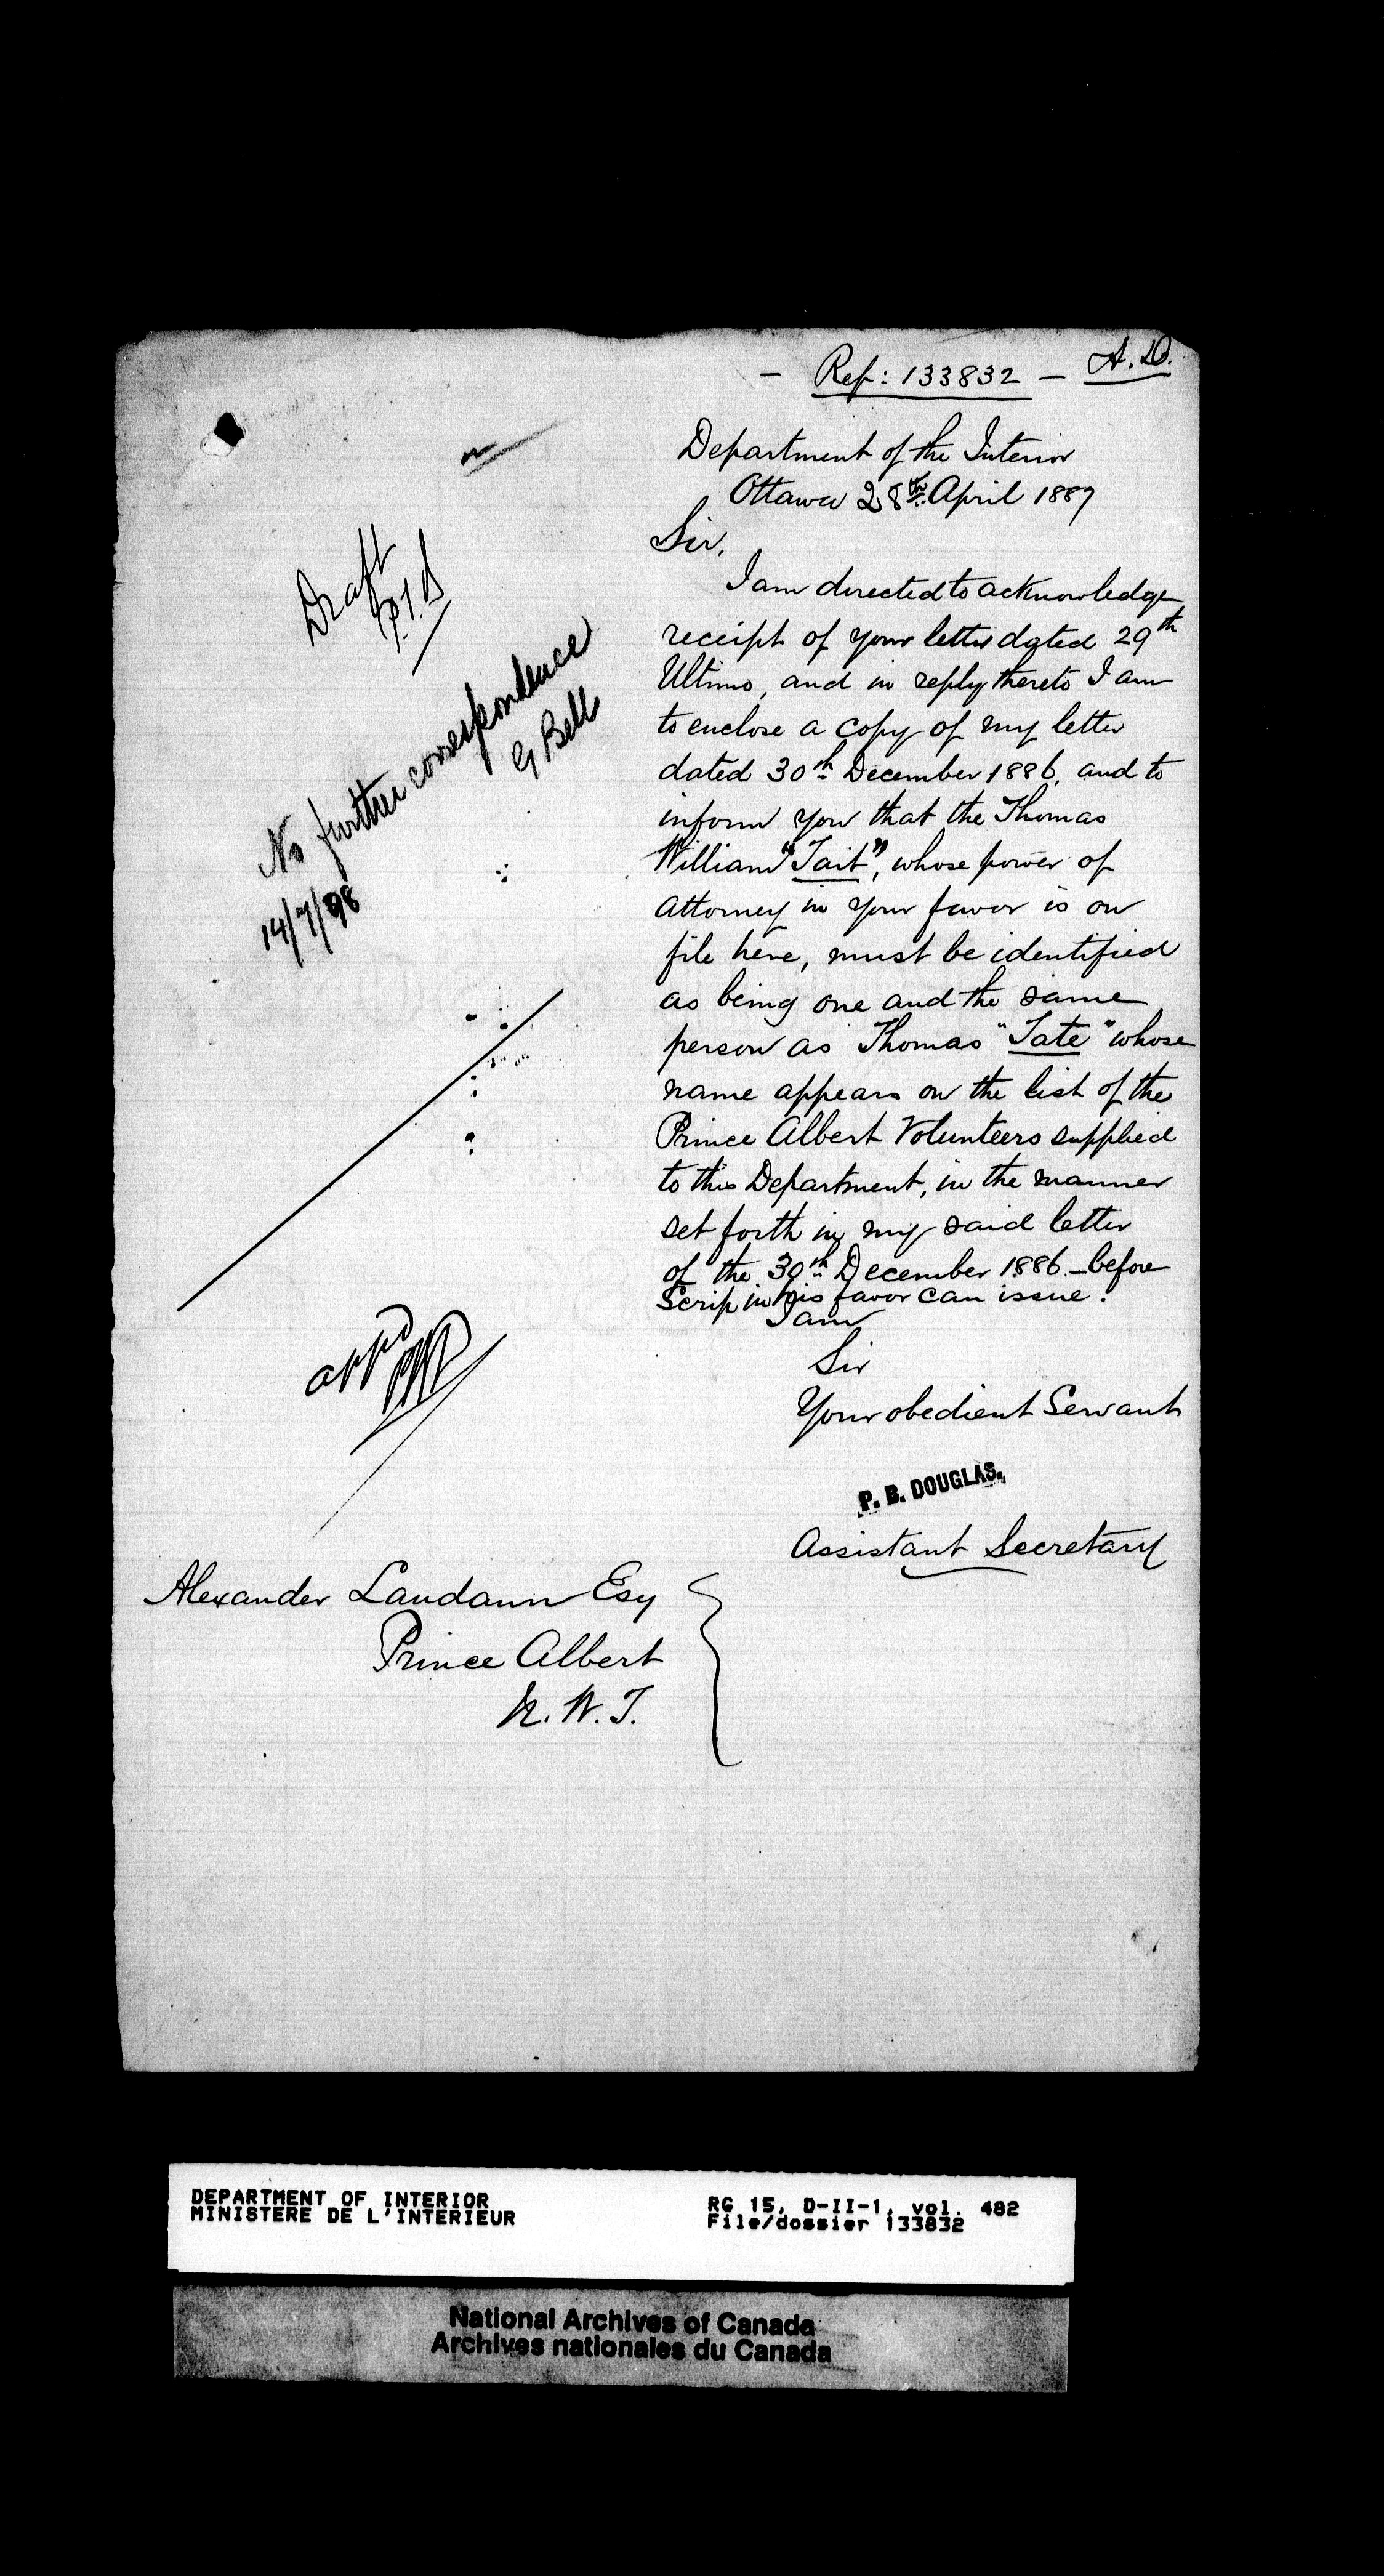 - Ref: 133832 - A.D.
Department of the Interior
Ottawa 28th April 1887
Sir,
I am directed to acknowledge
receipt of your letter dated 29th
Ultimo, and in reply thereto I am
to enclose a copy of my letter
dated 30th December 1886, and to
inform you that the Thomas
William "Tait", whose power of
Attorney in your favor is on
file here, must be identified
as being one and the same
person as Thomas "Tate" whose
name appears on the list of the
Prince Albert Volunteers supplied
to this Department, in the manner
set forth in my said letter
of the 30th December 1886 - before
Scrip in his favor can issue.
I am
Sir
Your obedient Servant
P. B. DOUGLAS.
Assistant Secretary
Draft
No further correspondence
G Bell
14/7/98
appd
Alexander Laudann Esq
Prince Albert
N.W.T.
DEPARTMENT OF INTERIOR
MINISTERE DE L'INTERIEUR
RG 15, D-II-1, vol. 482
File/dossier 133832
National Archives of Canada
Archives nationales du Canada